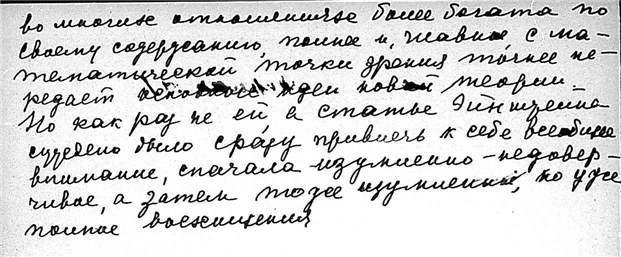 во многих отношениях более богата по
своему содержанию, полнее и, главное с ма-
тематической точки зрения точнее пе-
редаёт основные идеи новой теории.
Но как раз не ей, а статье Эйнштейна
суждено было сразу привлечь к себе всеобщее
внимание, сначала изумленно-недовер-
чивое, а затем тоже изумленное, но уже
полное восхищения